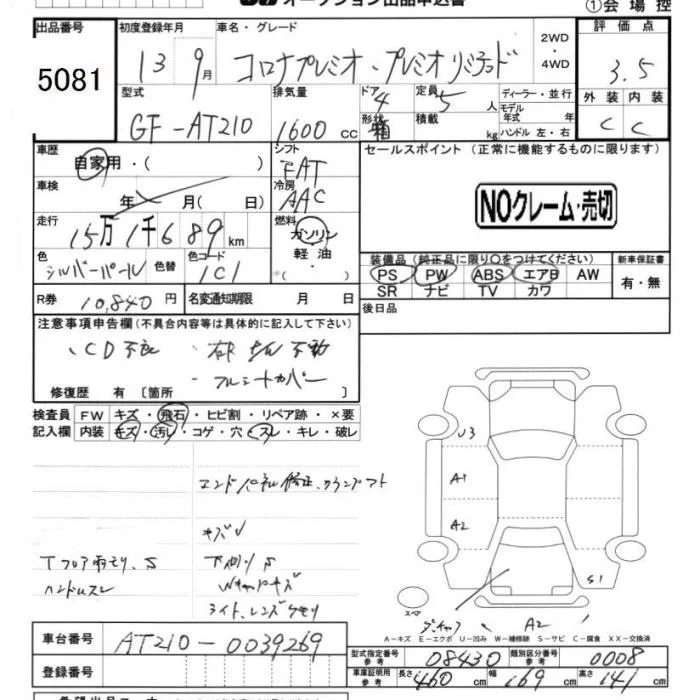 オークション出品申込書
①会場控
出品番号
5081
初度登録年月
13 9月
車名・グレード
コロナプレミオ・プレミオリミテッド
2WD
・
4WD
評価点
3.5
外装 内装
C C
型式
GF-AT210
排気量
1600 cc
ドア
4
形状
箱
定員
5 人
積載
kg
ディーラー・並行
モデル
年式 年
ハンドル 左・右
車歴
自家用・( )
シフト
FAT
セールスポイント (正常に機能するものに限ります)
車検
年 月( 日)
冷房
AAC
NOクレーム・売切
走行
15万1千689km
燃料
ガソリン
軽油
・( )
色
シルバーパール
色替
色コード
1C1
装備品 (純正品に限り○をつけてください)
PS PW ABS エアB AW
SR ナビ TV カワ
新車保証書
有・無
R券 10,840 円
名変通知期限 月 日
後日品
注意事項申告欄 (不具合内容等は具体的に記入して下さい)
、CD不良
・フルシートカバー
修復歴 有 〔箇所 〕
検査員 FW キズ・飛石・ヒビ割・リペア跡・×要
記入欄 内装 キズ・汚レ・コゲ・穴・スレ・キレ・破レ
エンドパネル修正、
キズ
Tフロア雨モリ、S
ハンドルスレ
下廻りS
ライト、レンズクモリ
U3
A1
A2
S1
A2
スペア
A−キズ E−エクボ U−凹み W−補修跡 S−サビ C−腐食 XX−交換済
車台番号 AT210-0039269
登録番号
型式指定番号
参考
08430
類別区分番号
参考
0008
車庫証明用
参考
長さ 460 cm 幅 169 cm 高さ 141 cm